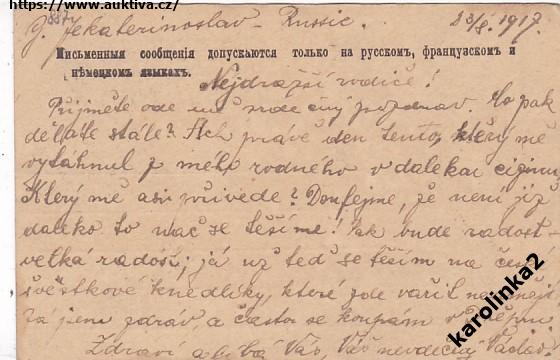 https://www.auktiva.cz/
G. Jekaterinoslav - Russie. 23/8. 1917.
Письменныя сообщенія допускаются только на русскомъ, французскомъ и
нѣмецкомъ языкахъ.
Nejdražší rodiče!
Přijměte ode mě srdečný pozdrav. Co pak
děláte stále? Ach právě den tento, který mě
vytáhnul z mého rodného v dalekou cizinu,
Který mě asi přivede? Doufejme, že není již
daleko to nač se těšíme! Jak bude radost -
velká radost; já už teď se těším na
švestkové knedlíky, které zde vařil
Já jsem zdráv a často se koupám v
Zdraví a líbá Vás, Váš nevděčný Václav
karolinka2